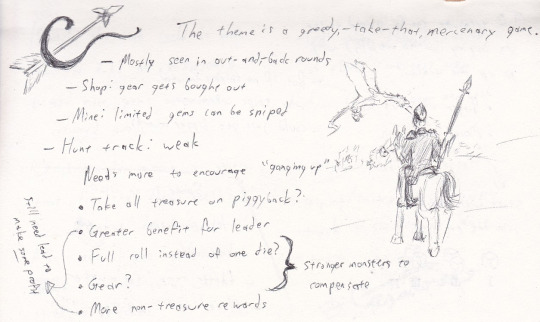 The theme is a greedy, take-that, mercenary game.
– Mostly seen in out-and-back rounds
– Shop: gear gets bought out
– Mine: limited gems can be sniped
– Hunt track: weak
Needs more to encourage "ganging up"
• Take all treasure on piggyback?
• Greater benefit for leader
• Full roll instead of one die?
• Gear?
• More non-treasure rewards
Stronger monsters to
compensate
Still need lead to
make some profit